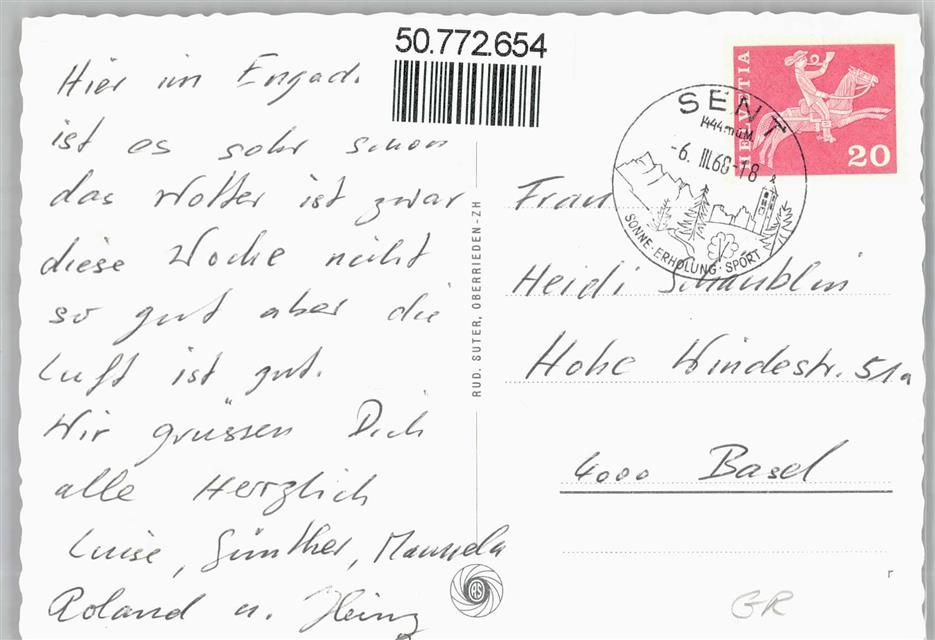 50.772.654
Hier im Engad.
ist es sehr schön
das Wetter ist zwar
diese Woche nicht
so gut aber die
Luft ist gut.
Wir grüssen Dich
alle Herzlich
Luise, Günther, Manuela
Roland u. Heinz
RUD. SUTER, OBERRIEDEN-ZH
RS
HELVETIA
20
SENT
1444 m ü M.
-6. III. 68-18
SONNE·ERHOLUNG·SPORT
Frau
Heidi Schäublin
Hohe Windestr. 51a
4000 Basel
r
GR